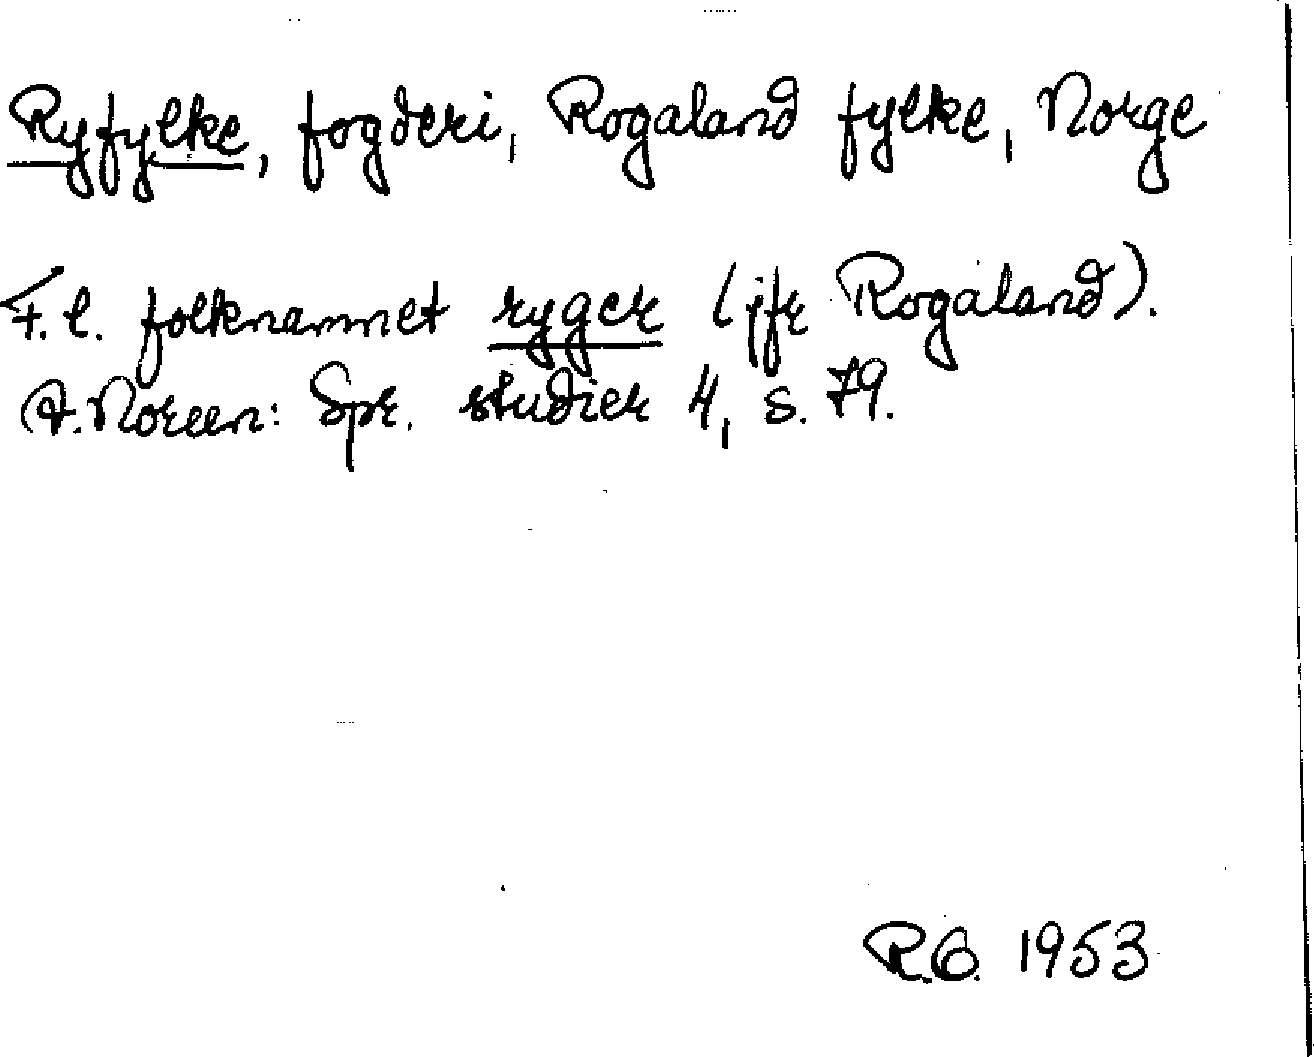 Ryfylke, fogderi, Rogaland fylke, Norge
F. l. folknamnet ryger (jfr Rogaland).
A. Noreen: Spr. studier 4, s. 79.
R.O. 1953